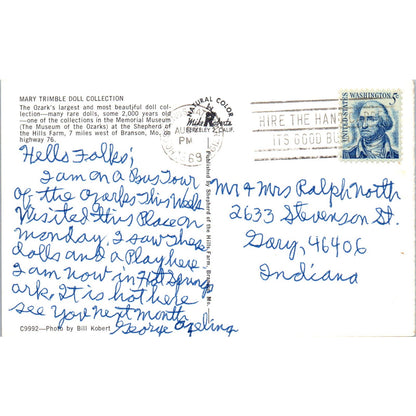 MARY TRIMBLE DOLL COLLECTION
The Ozark's largest and most beautiful doll col-
lection—many rare dolls, some 2,000 years old
—one of the collections in the Memorial Museum
(The Museum of the Ozarks) at the Shepherd of
the Hills Farm, 7 miles west of Branson, Mo., on
highway 76.
Hello Folks;
I am on a Bus Tour
of the Ozarks This Week
Visited This Place on
monday. I saw These
dolls and a Play here
I am now in Hot Springs
ark. It is hot here
see you next month.
George Ebeling
C9992—Photo by Bill Kobert
Published by Shepherd of the Hills Farm, Branson, Mo.
NATURAL COLOR
Mike Roberts
BERKELEY 2, CALIF.
AUG
PM
1969
HIRE THE HAN
ITS GOOD BU
5¢
WASHINGTON
UNITED STATES
Mr & Mrs Ralph North
2633 Stevenson St.
Gary, 46406
Indiana